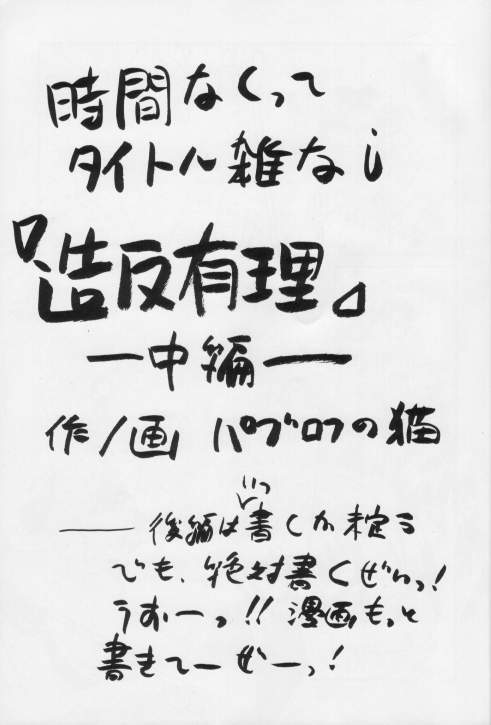 時間なくって
タイトル雑なし
『造反有理』
―中編―
作/画 パブロフの猫
いつ
――後編は書くか未定ろ
でも、絶対書くぜいっ!
うおーっ!! 漫画もっと
書きてーぜーっ!